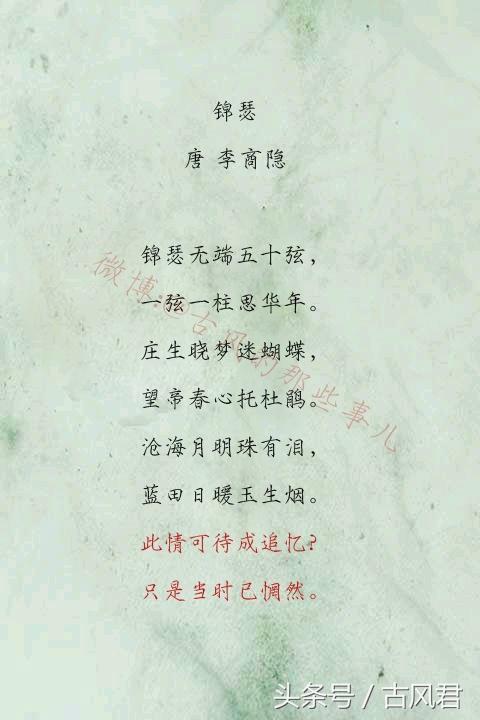 锦瑟
唐 李商隐
锦瑟无端五十弦，
一弦一柱思华年。
庄生晓梦迷蝴蝶，
望帝春心托杜鹃。
沧海月明珠有泪，
蓝田日暖玉生烟。
此情可待成追忆?
只是当时已惘然。
微博:@古风的那些事儿
头条号 / 古风君